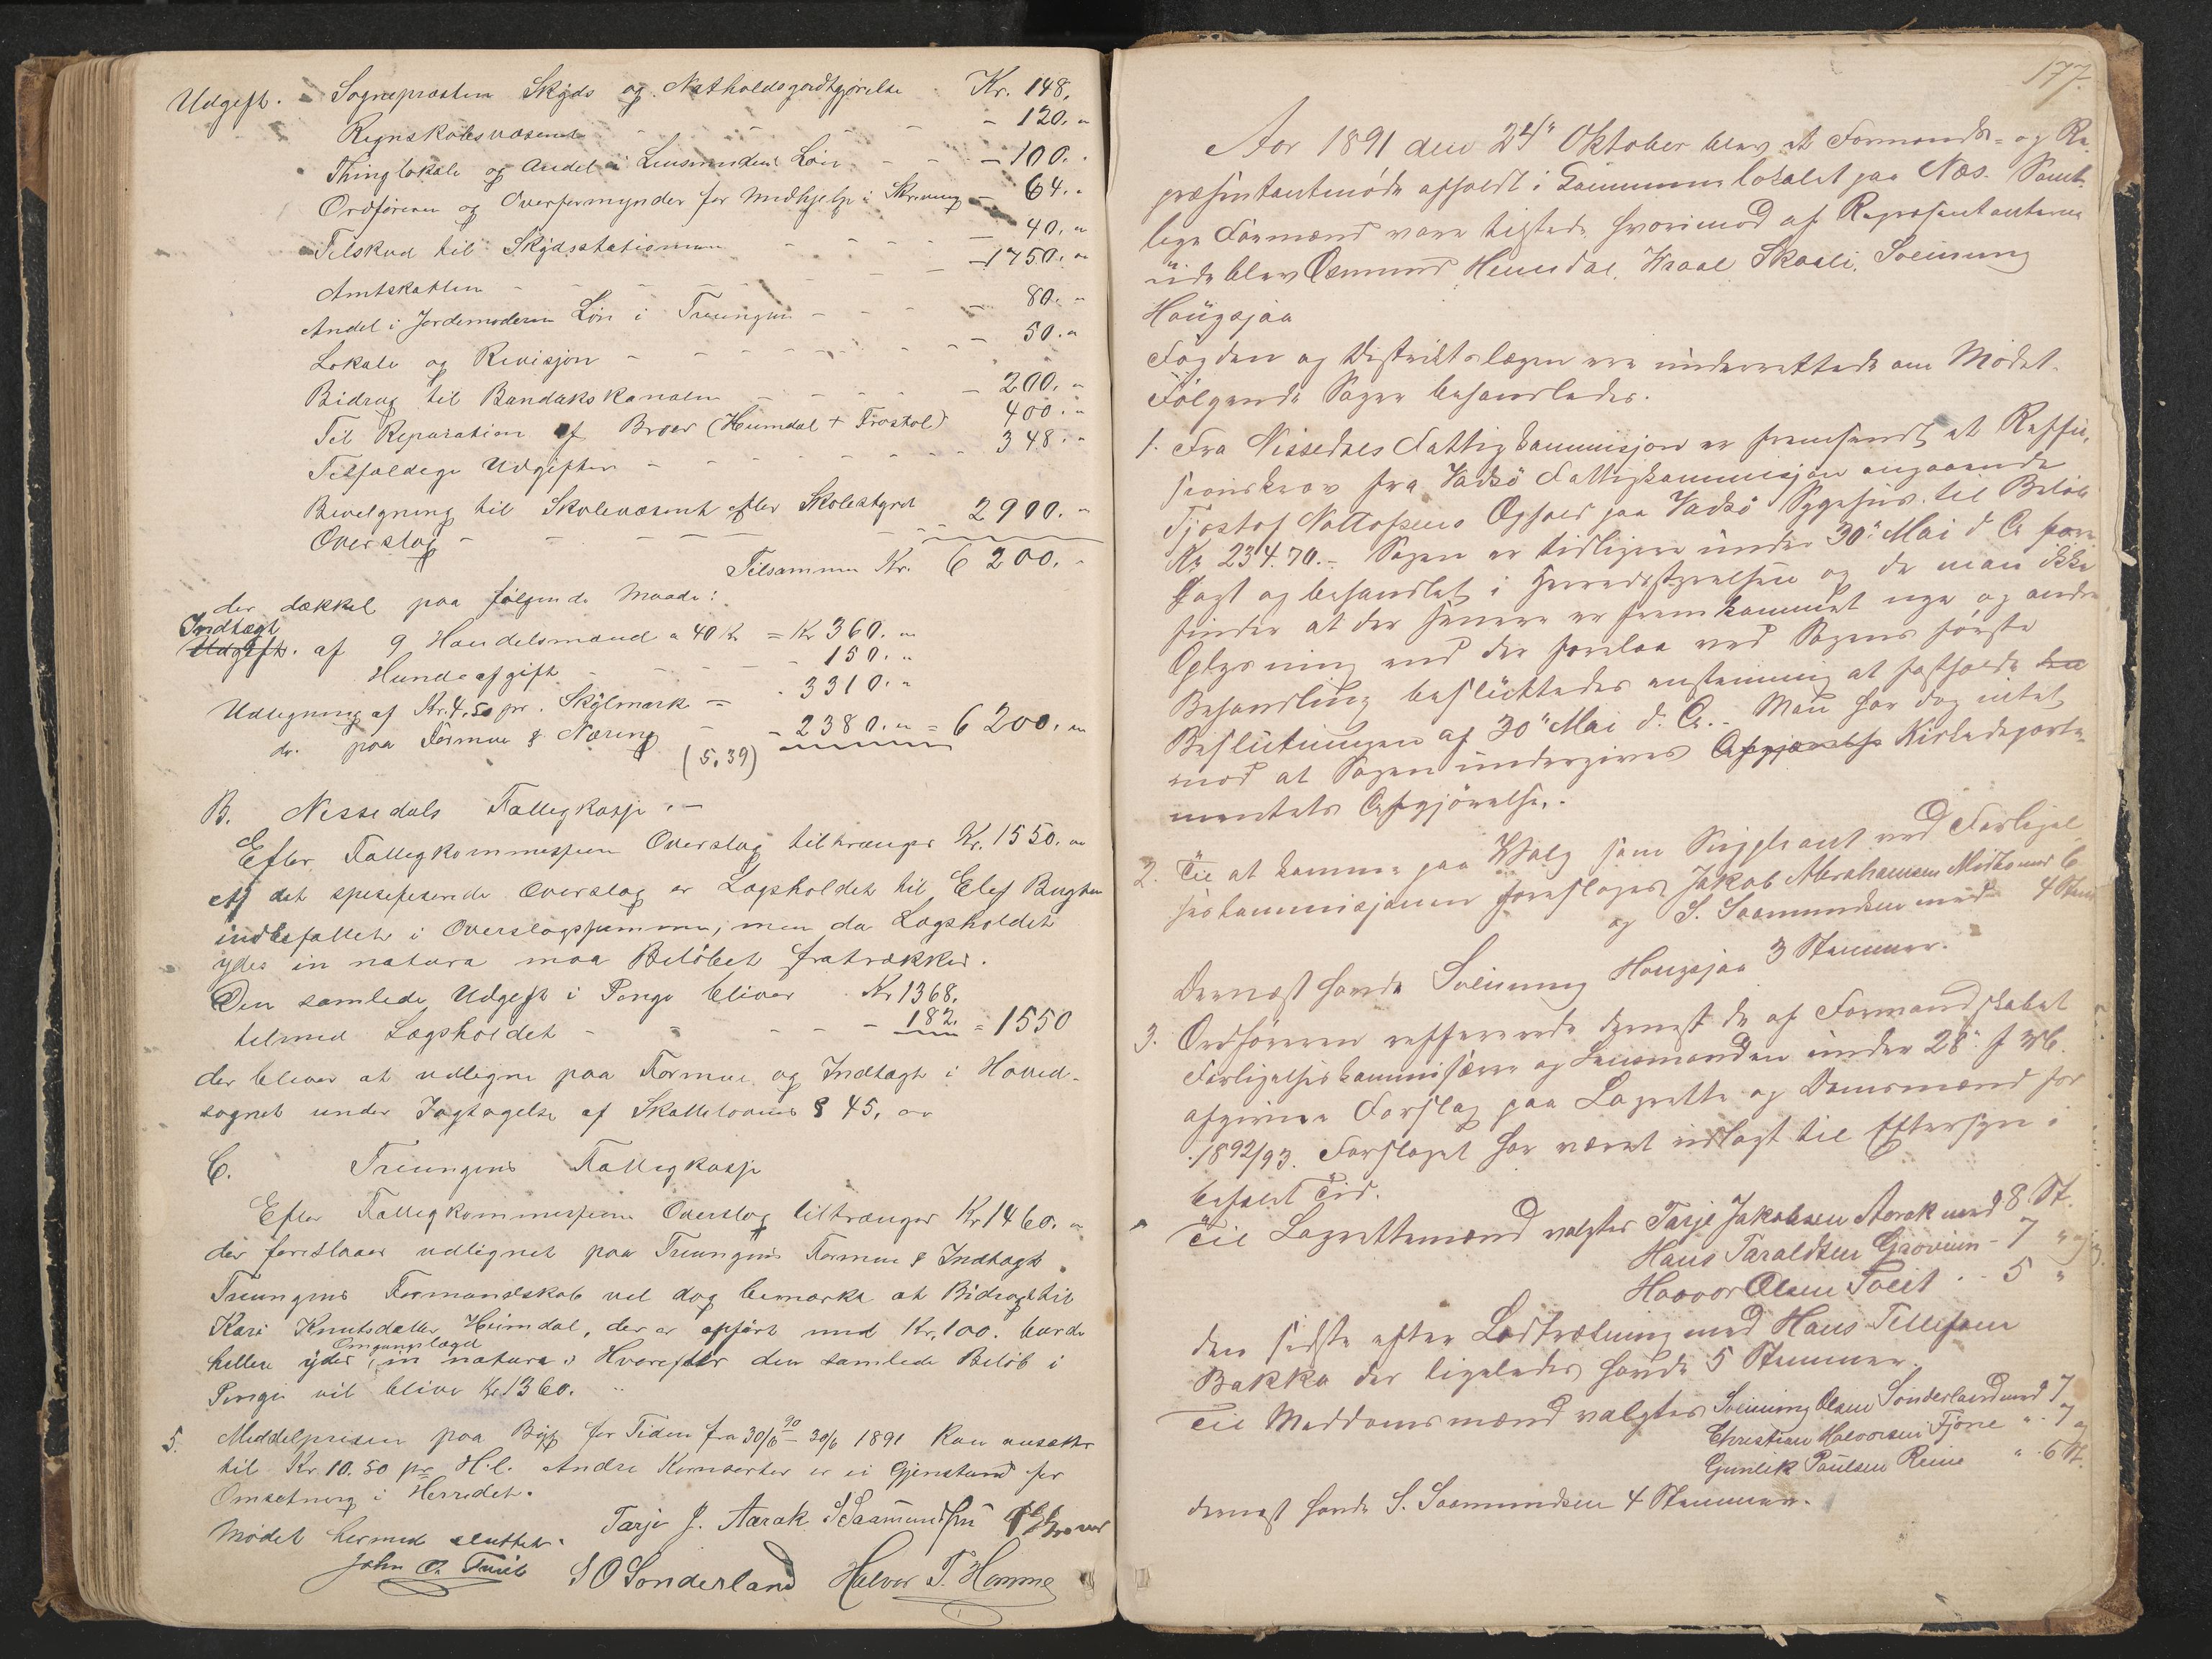 Udgift. Sognepræsten Skyds og Natholdsgodtgjørelse Kr. 148,
Regnskabsvæsenet - - - - 120. "
Thinglokale og Andel i Lensmandens Løn - - - 100. "
Ordføreren og Overformynder for Medhjelp i Skrivning - 64. "
Tilskud til Skydsstationen - - - 40. "
Amtskatten - - - - - 1750. "
Andel i Jordemoderens Løn i Treungen - - - 80. "
Lokale og Revisjon - - - - - 50. "
Bidrag til Bandakskanalen - - - - 200. "
Til Reparation af Broer (Heimdal + Frostøl) 400. "
Tilfældige Udgifter - - - - - 348. "
Bevilgning til Skolevæsenet efter Skolestyret
Overslag - - - - - 2900. "
Tilsammen Kr. 6200. "
der dækket paa følgende Maade:
Indtægt
Udgift. af 9 Handelsmænd a 40 Kr = Kr 360. "
Hundeafgift - - - - 150. "
Udlegning af Kr. 4,50 pr. Skylmark = - 3310. "
do. paa Formue & Næring - - 2380. " = 6200. "
(5,39)
B. Nissedals Fattigkasse. -
Efter Fattigkommissjonen Overslag tiltrænges Kr. 1550. "
Af det spesifiserede Overslag er Lægsholdet til Elef
indbefattet i Overslagssummen, men da Lægsholdet
ydes in natura maa Beløbet fratrækkes.
Den samlede Udgift i Penge bliver Kr 1368.
tilmed Lægsholdet - - - - 182. = 1550
der bliver at udlegne paa Formue og Indtægt i Hoved-
sognet under Iagtagelse af Skattelovens § 45. "
C. Treungens Fattigkasse
Efter Fattigkommissjonen Overslag tiltrænges Kr 1460. "
der foreslaaes udlignet paa Treungens Formue & Indtægt.
Treungens Formandskab vil dog bemærke at Bidraget til
Kari Knutsdatter Heimdal, der er opført med Kr. 100. burde
Omgangslægd
hellere ydes, in natura, Hvorefter den samlede Beløb i
Penge vil blive Kr 1360. "
5. Middelprisen paa Byg for Tiden fra 30/6 90 - 30/6 1891 kan ansættes
til Kr. 10.50 pr H.l. Andre Kornsorter er ei Gjenstand for
Omsetning i Herredet.
Mødet hermed sluttet. Tarje J. Aarak S Saamundsen
John O. Tveit S O Sønderland Halvor T. Homme
177.
Aar 1891 den 24" Oktober blev et Formands- og Re-
præsentantmøde afholdt i Kommunelokalet paa Næs. Samt-
lige Formænd vare tilstede hvorimod af Repræsentanterne
ude blev Osmund Heimdal, Kraal Skaali, Sveinung
Haugsjaa
Fogden og Distriktslægen ere underrettede om Mødet.
Følgende Sager behandledes.
1. Fra Nissedals Fattigkommisjon er fremsendt et Reffu-
sionskrav fra Vadsø Fattigkommisjon angaaende
Tjøstof Nottofsens Ophold paa Vadsø Sygehus til Beløb
Kr. 234.70.- Sagen er tidligere under 30" Mai d. A. fore-
lagt og behandlet i Herredsstyrelsen og da man ikke
finder at der senere er fremkommet nye og andre
Oplysning end der forelaa ved Sagens første
Behandling besluttedes enstemmig at fastholde den
Beslutningen af 30" Mai d. A.- Man har dog intet
mod at Sagen undergives Afgjørelse Kirkedeparte-
mentets Afgjørelse.
2. Til at komme paa Valg som Suppleant ved Forligel-
seskommisjonen foreslaaes Jakob Abrahamsen 6
og S. Saamundsen med 4 Stemmer
Dernæst havde Sveinung Haugsjaa 3 Stemmer.
3. Ordføreren refererede dernæst de af Formandskabet
Forligelseskommisærer og Lensmanden under 28" f. M.
afgivne Forslag paa Lagrette og Domsmænd for
1892/93. Forslaget har været udlagt til Eftersyn i
befalet Tid.
Til Lagrettemænd valgtes Tarje Jakobsen Aarak med 8 St.
Hans Taraldsen Grøvum - 7 " og
Haavor Olsen Tveit - - 5 "
den sidste efter Lodtrækning med Hans Tellefsen
Bakka der ligeledes havde 5 Stemmer.
Til Meddomsmænd valgtes Sveinung Olsen Sønderland med 7
Christian Halvorsen Fjone " 7 og
Gunlek Paulsen Reine " 6 St.
dernæst havde S. Saamundsen 4 Stemmer.